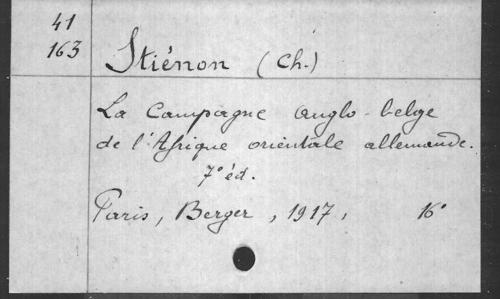 41
163
Stiénon (Ch.)
La Campagne anglo-belge
de l'Afrique orientale allemande.
7° éd.
Paris, Berger, 1917, 16°